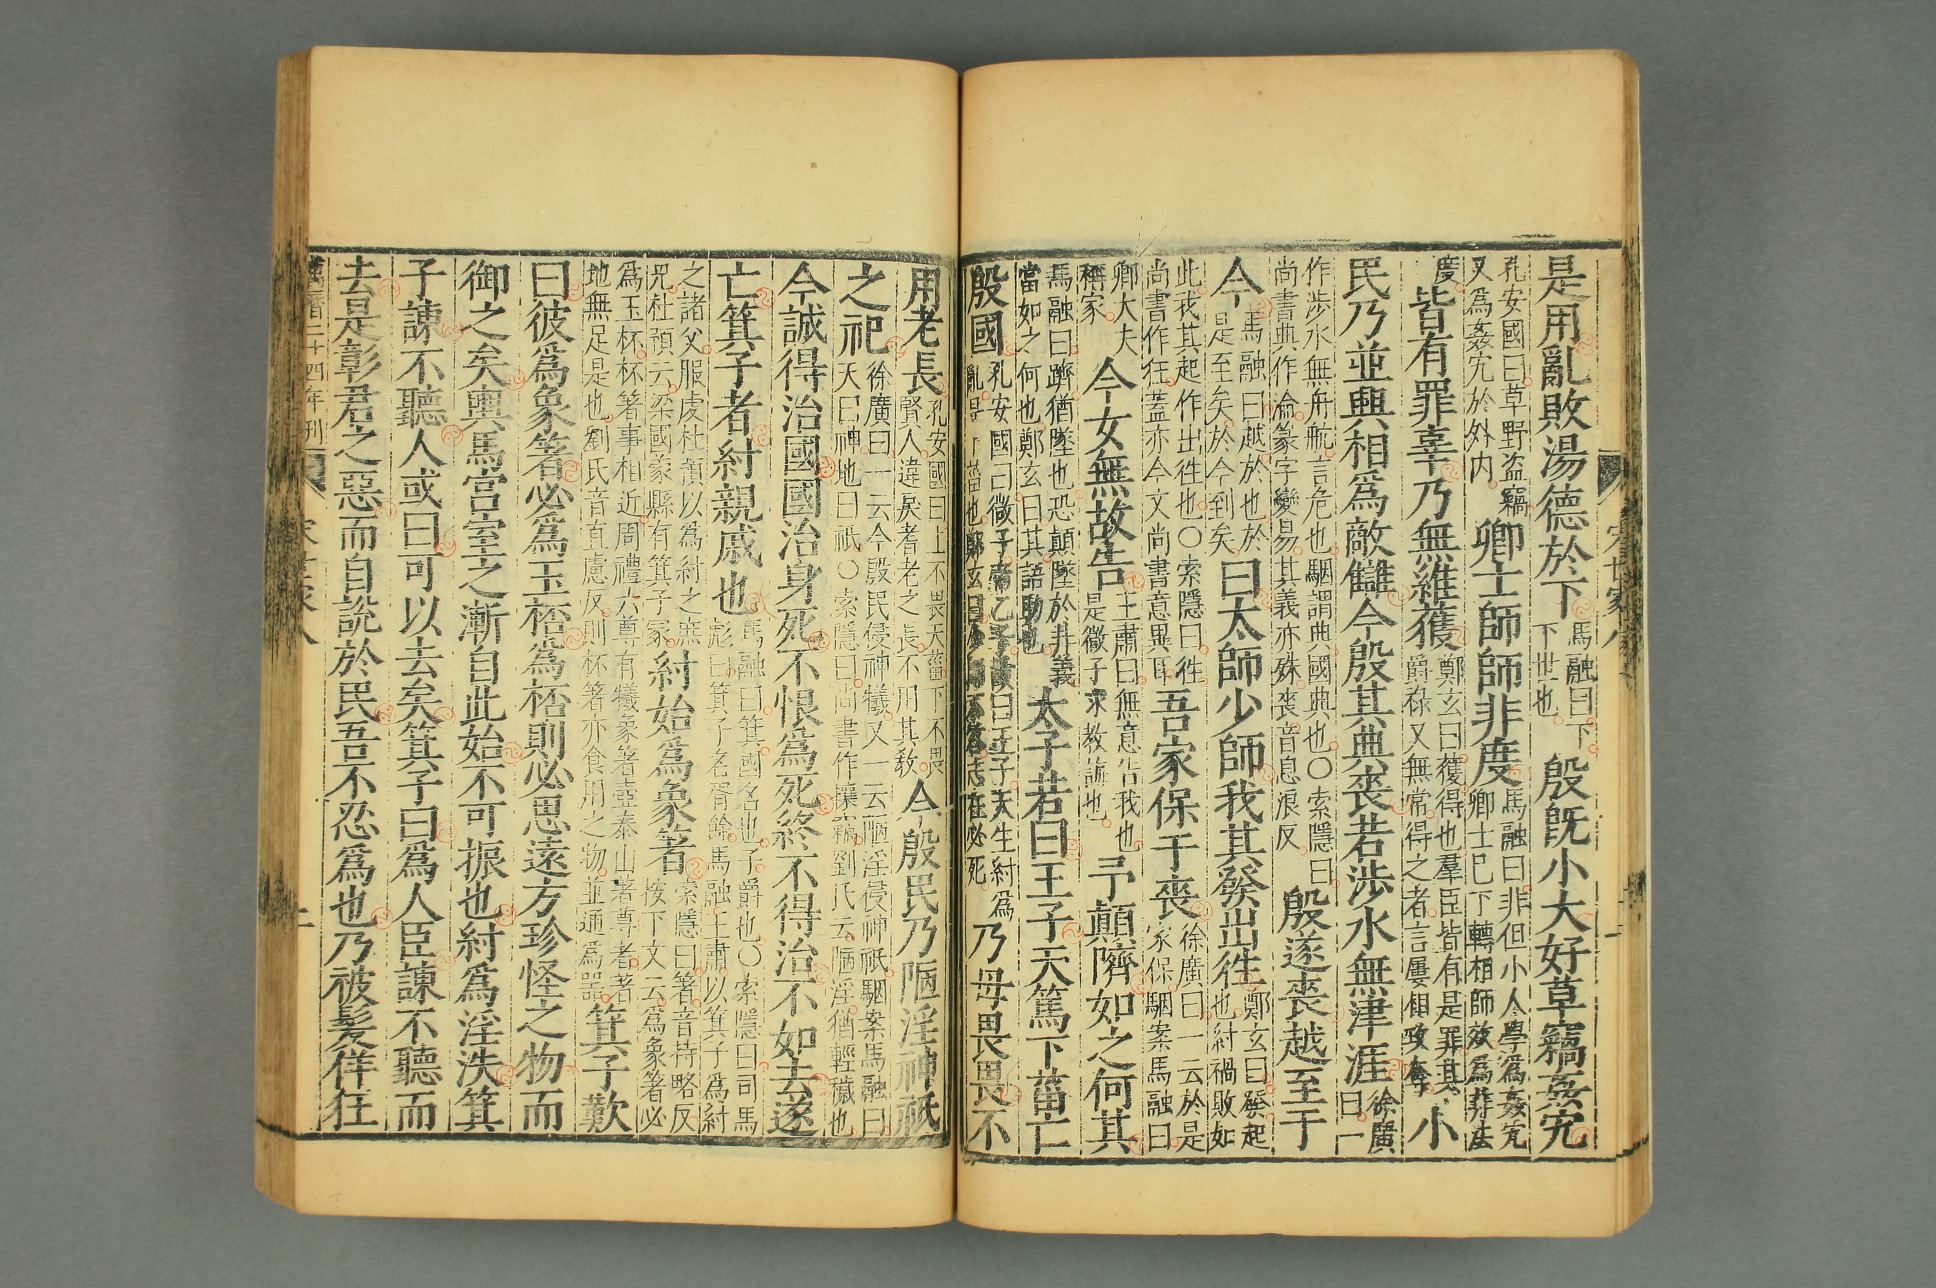 是用亂敗湯德於下馬融曰下下世也殷旣小大好草竊姦宄
孔安國曰草野盗竊又爲姦宄於外内卿士師師非度馬融曰非但小人學爲姦宄卿士已下轉相師效爲非法
度皆有罪辜乃無維獲鄭玄曰獲得也羣臣皆有是罪其爵祿又無常得之者言屢相攻奪小
民乃並興相爲敵讎今殷其典喪若涉水無津涯徐廣曰一
作涉水無舟航言危也駰謂典國典也○索隱曰尚書典作淪篆字變易其義亦殊喪音息浪反殷遂喪越至于
今馬融曰越於也於是至矣於今到矣曰太師少師我其發出徃鄭玄曰發起也紂禍敗如
此我其起作出徃也○索隱曰徃尚書作狂蓋亦今文尚書意異耳吾家保于喪徐廣曰一云於是家保駰案馬融曰
卿大夫稱家今女無故告王肅曰無意告我也是微子求教誨也予顚隮如之何其
馬融曰躋猶墜也恐顚墜於非義當如之何也鄭玄曰其語助也太子若曰王子天篤下菑亡
殷國孔安國曰微子帝乙子故曰王子天生紂爲亂是下菑也鄭玄曰乃母畏畏不
用老長孔安國曰上不畏天菑下不畏賢人違戾耆老之長不用其敎今殷民乃陋淫神祇
之祀徐廣曰一云今殷民侵神犧又一云陋淫侵神祇駰案馬融曰天曰神地曰祇○索隱曰尚書作攘竊劉氏云陋淫猶輕穢也
今誠得治國國治身死不恨爲死終不得治不如去遂
亡箕子者紂親戚也馬融曰箕國名也子爵也○索隱曰司馬彪曰箕子名胥餘馬融王肅以箕子爲紂
之諸父服虔杜預以爲紂之庶兄杜預云梁國蒙縣有箕子冢紂始爲象箸索隱曰箸音持略反按下文云爲象箸必
爲玉杯杯箸事相近周禮六尊有犧象著壺泰山著尊者著地無足是也劉氏音直慮反則杯箸亦食用之物並通爲器箕子歎
曰彼爲象箸必爲玉桮爲桮則必思遠方珍怪之物而
御之矣輿馬宮室之漸自此始不可振也紂爲淫泆箕
子諫不聽人或曰可以去矣箕子曰爲人臣諫不聽而
去是彰君之惡而自說於民吾不忍爲也乃被髮佯狂
萬曆二十四年刊